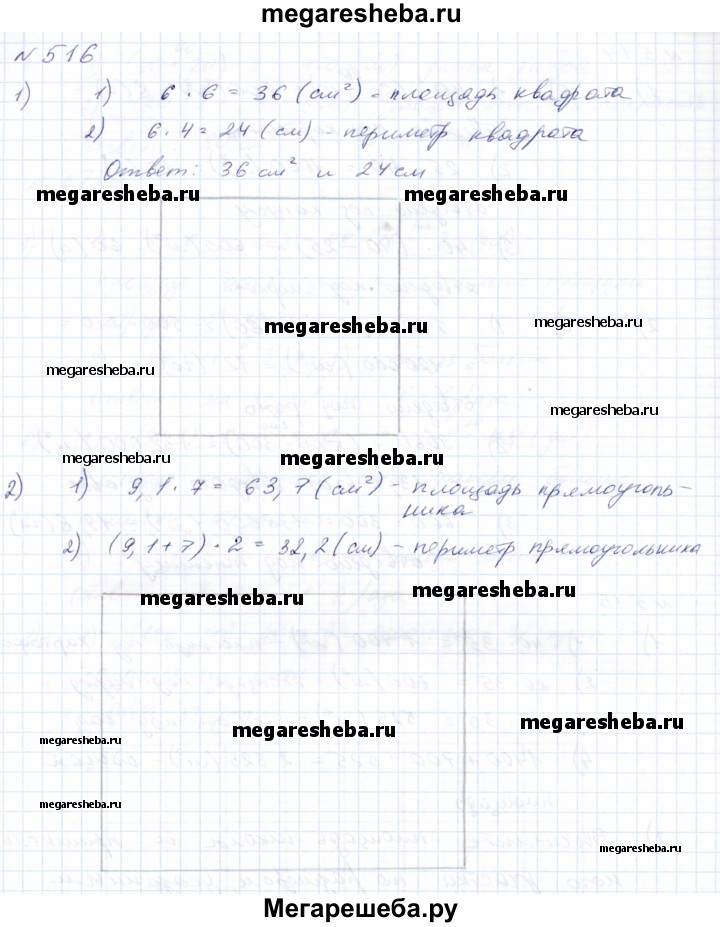 megaresheba.ru
№ 516
1) 1) 6 · 6 = 36 (см²) - площадь квадрата
2) 6 · 4 = 24 (см) - периметр квадрата
Ответ: 36 см² и 24 см
megaresheba.ru megaresheba.ru
megaresheba.ru megaresheba.ru
megaresheba.ru
megaresheba.ru
megaresheba.ru megaresheba.ru
2) 1) 9,1 · 7 = 63,7 (см²) - площадь прямоуголь-
ника
2) (9,1 + 7) · 2 = 32,2 (см) - периметр прямоугольника
megaresheba.ru megaresheba.ru
megaresheba.ru megaresheba.ru
megaresheba.ru
megaresheba.ru
megaresheba.ru
Мегарешеба.ру